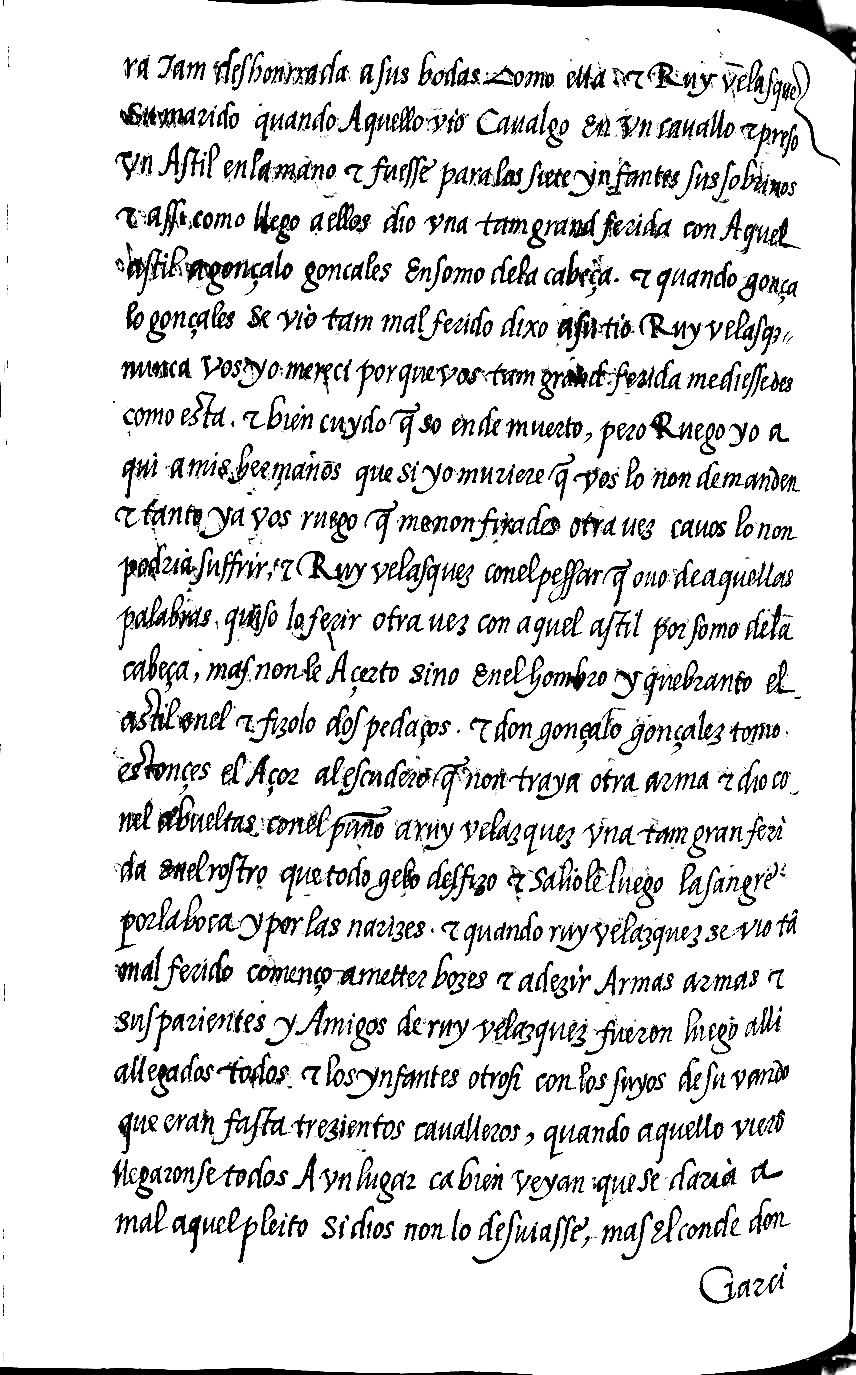 ra Tam deshonrrada a sus bodas Como ella & Ruy velasquez
Su marido quando Aquello vio Cavalgo En vn cavallo & preso
vn Astil en la mano & fuesse para los siete ynfantes sus sobrinos
& assi como llego a ellos dio vna tam grand ferida con Aquel
astil a gonçalo goncales En somo de la cabeça. & quando gonça
lo gonçales se vio tam mal ferido dixo a su tio Ruy velasqz
nunca vos yo mereci porque vos tam grand ferida me diessedes
como esta. & bien cuydo q̃ so ende muerto, pero Ruego yo a
qui a mis hermanos que si yo muriere q̃ vos lo non demanden
& tanto ya vos ruego q̃ me non firades otra vez ca vos lo non
podria suffrir, & Ruy velasquez con el pessar q̃ ouo de aquellas
palabras quiso lo ferir otra vez con aquel astil por somo de la
cabeça, mas non le Açerto sino En el hombro y quebranto el
astil en el & fizolo dos pedaços. & don gonçalo gonçalez tomo
estonçes el Açor al escudero q̃ non traya otra arma & dio co
nel abueltas con el puño a ruy velazquez vna tam gran feri
da en el rostro que todo gelo desfizo & Saliole luego la sangre
por la boca y por las narizes. & quando ruy velazquez se vio tã
mal ferido començo a metter bozes & a dezir Armas armas &
sus parientes y Amigos de ruy velazquez fueron luego alli
allegados todos & los ynfantes otrosi con los suyos de su vando
que eran fasta trezientos cavalleros, quando aquello vierõ
llegaronse todos A vn lugar ca bien veyan que se daria a
mal aquel pleito si dios non lo desuiasse, mas El conde don
Garci